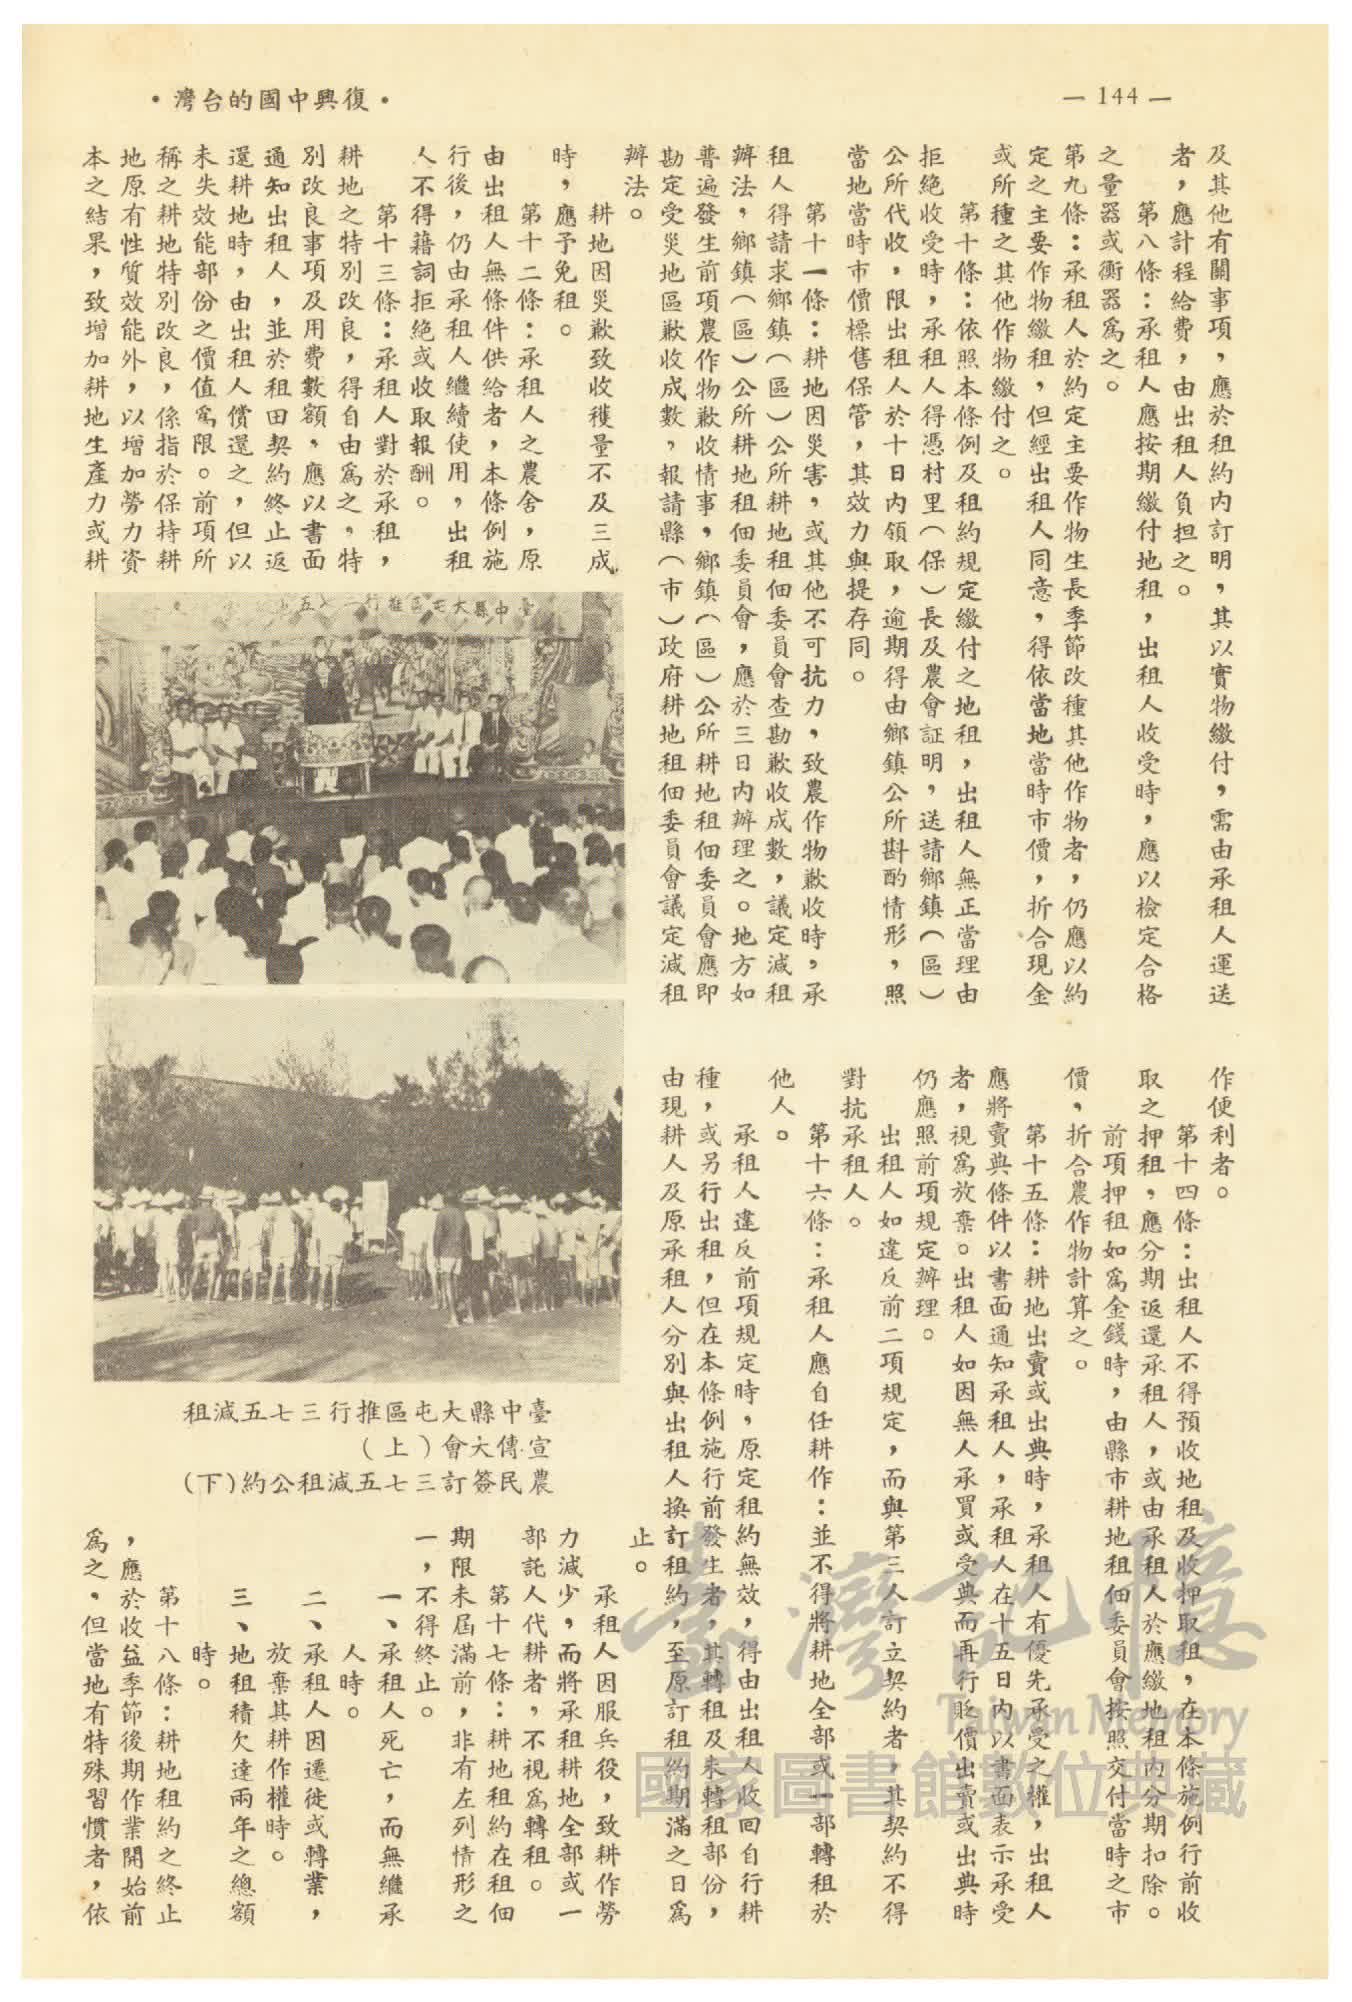 — 144 —
•復興中國的台灣•
及其他有關事項，應於租約內訂明，其以實物繳付，需由承租人運送
者，應計程給費，由出租人負担之。
第八條：承租人應按期繳付地租，出租人收受時，應以檢定合格
之量器或衡器爲之。
第九條：承租人於約定主要作物生長季節改種其他作物者，仍應以約
定之主要作物繳租，但經出租人同意，得依當地當時市價，折合現金
或所種之其他作物繳付之。
第十條：依照本條例及租約規定繳付之地租，出租人無正當理由
拒絕收受時，承租人得憑村里（保）長及農會証明，送請鄉鎮（區）
公所代收，限出租人於十日內領取，逾期得由鄉鎮公所斟酌情形，照
當地當時市價標售保管，其效力與提存同。
第十一條：耕地因災害，或其他不可抗力，致農作物歉收時，承
租人得請求鄉鎮（區）公所耕地租佃委員會查勘歉收成數，議定減租
辦法，鄉鎮（區）公所耕地租佃委員會，應於三日內辦理之。地方如
普遍發生前項農作物歉收情事，鄉鎮（區）公所耕地租佃委員會應即
勘定受災地區歉收成數，報請縣（市）政府耕地租佃委員會議定減租
辦法。
耕地因災歉致收穫量不及三成
時，應予免租。
第十二條：承租人之農舍，原
由出租人無條件供給者，本條例施
行後，仍由承租人繼續使用，出租
人不得藉詞拒絕或收取報酬。
第十三條：承租人對於承租，
耕地之特別改良，得自由爲之，特
別改良事項及用費數額，應以書面
通知出租人，並於租田契約終止返
還耕地時，由出租人償還之，但以
未失效能部份之價值爲限。前項所
稱之耕地特別改良，係指於保持耕
地原有性質效能外，以增加勞力資
本之結果，致增加耕地生產力或耕
作便利者。
第十四條：出租人不得預收地租及收押取租，在本條施例行前收
取之押租，應分期返還承租人，或由承租人於應繳地租內分期扣除。
前項押租如爲金錢時，由縣市耕地租佃委員會按照交付當時之市
價，折合農作物計算之。
第十五條：耕地出賣或出典時，承租人有優先承受之權，出租人
應將賣典條件以書面通知承租人，承租人在十五日內以書面表示承受
者，視爲放棄。出租人如因無人承買或受典而再行貶價出賣或出典時
仍應照前項規定辦理。
出租人如違反前二項規定，而與第三人訂立契約者，其契約不得
對抗承租人。
第十六條：承租人應自任耕作：並不得將耕地全部或一部轉租於
他人。
承租人違反前項規定時，原定租約無效，得由出租人收回自行耕
種，或另行出租，但在本條例施行前發生者，其轉租及未轉租部份，
由現耕人及原承租人分別與出租人換訂租約，至原訂租約期滿之日爲
止。
承租人因服兵役，致耕作勞
力減少，而將承租耕地全部或一
部託人代耕者，不視爲轉租。
第十七條：耕地租約在租佃
期限未屆滿前，非有左列情形之
一，不得終止。
一、承租人死亡，而無繼承
人時。
二、承租人因遷徙或轉業，
放棄其耕作權時。
三、地租積欠達兩年之總額
時。
第十八條：耕地租約之終止
，應於收益季節後期作業開始前
爲之，但當地有特殊習慣者，依
臺中縣大屯區推行三七五減租
宣傳大會（上）
農民簽訂三七五減租公約（下）
臺灣記憶
Taiwan Memory
國家圖書館數位典藏